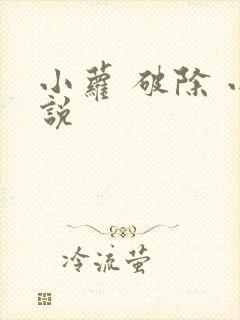 小蘿 破除
說
冷流萤